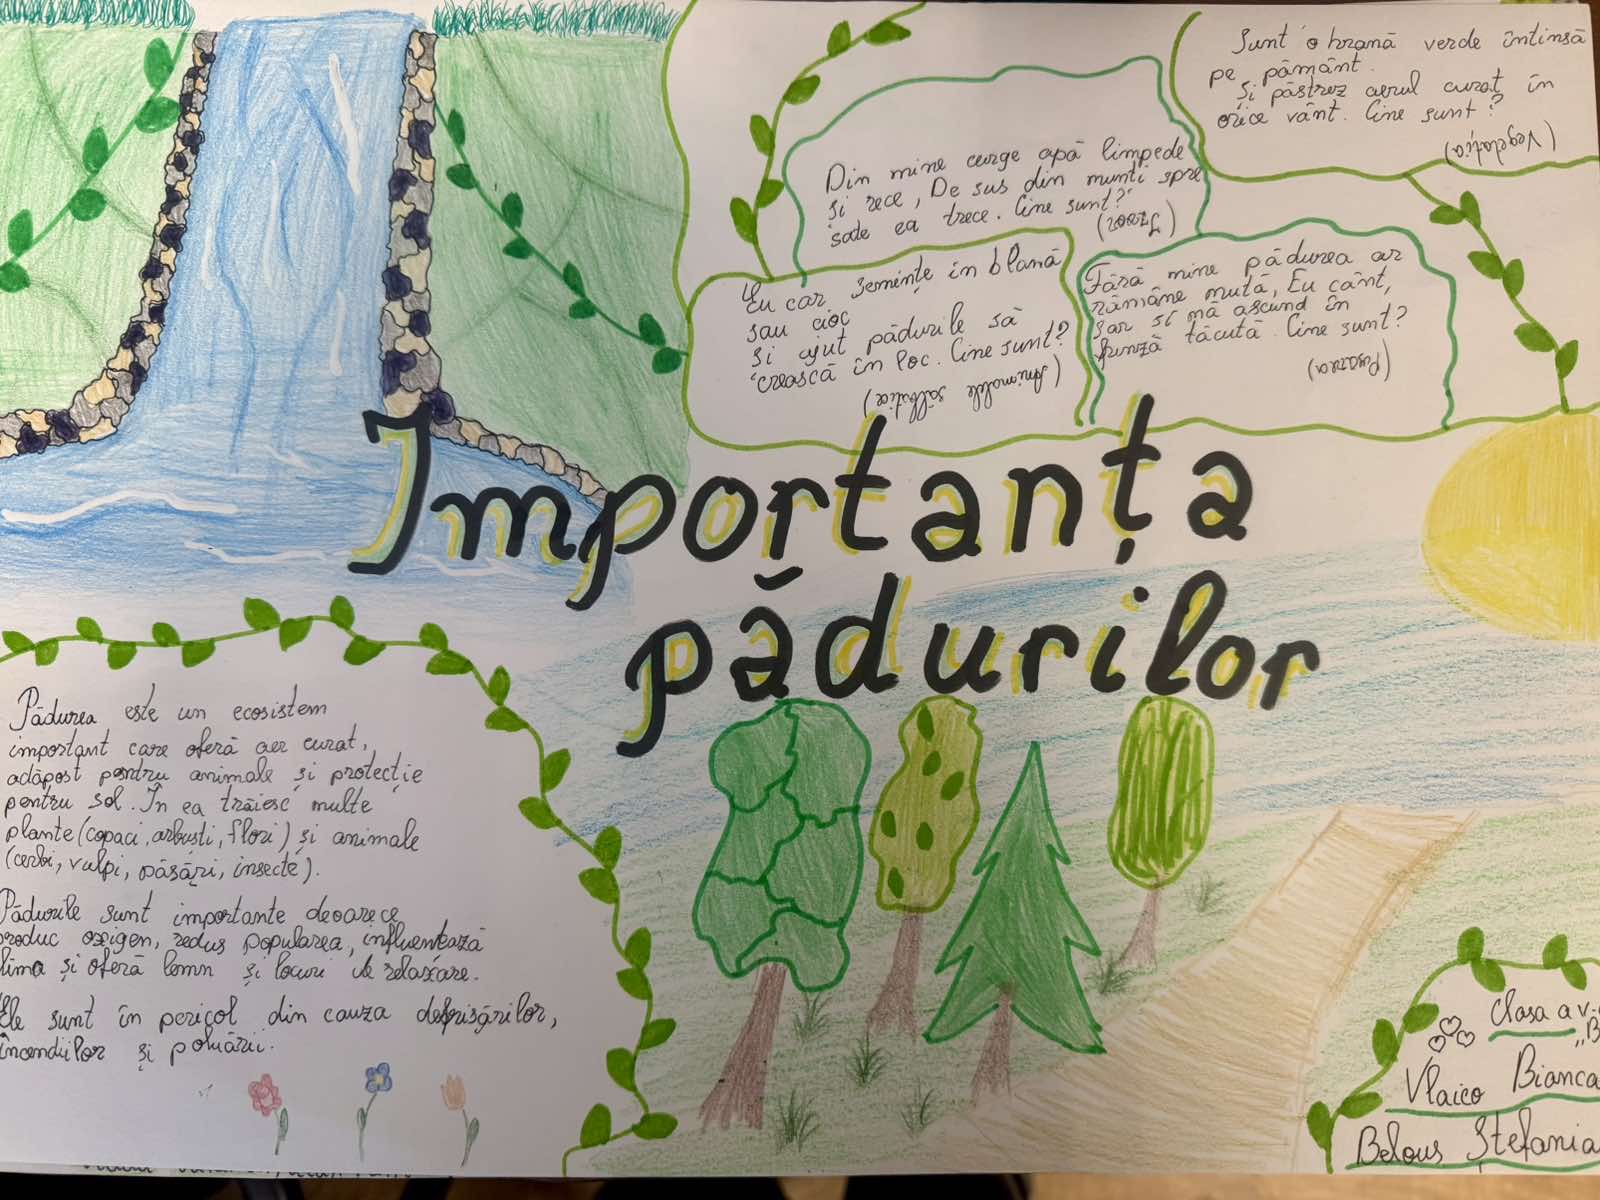 Sunt o hrană verde întinsă
pe pământ.
Și păstrez aerul curat în
orice vânt. Cine sunt?
(Vegetația)
Din mine curge apă limpede
și rece, De sus din munți spre
sate ea trece. Cine sunt?
(Izvor)
Eu car semințe în blană
sau cioc
și ajut pădurile să
crească în loc. Cine sunt?
(Animalele sălbatice)
Fără mine pădurea ar
rămâne mută, Eu cânt,
sar și mă ascund în
frunză tăcută. Cine sunt?
(Pasărea)
Importanța
pădurilor
Pădurea este un ecosistem
important care oferă aer curat,
adăpost pentru animale și protecție
pentru sol. În ea trăiesc multe
plante (copaci, arbuști, flori) și animale
(cerbi, vulpi, păsări, insecte).
Pădurile sunt importante deoarece
produc oxigen, redus popularea, influențează
clima și oferă lemn și locuri de relaxare.
Ele sunt în pericol din cauza defrișărilor,
incendiilor și poluării.
Clasa a V-a
„B
Vlaico Bianca
Belous Ștefania